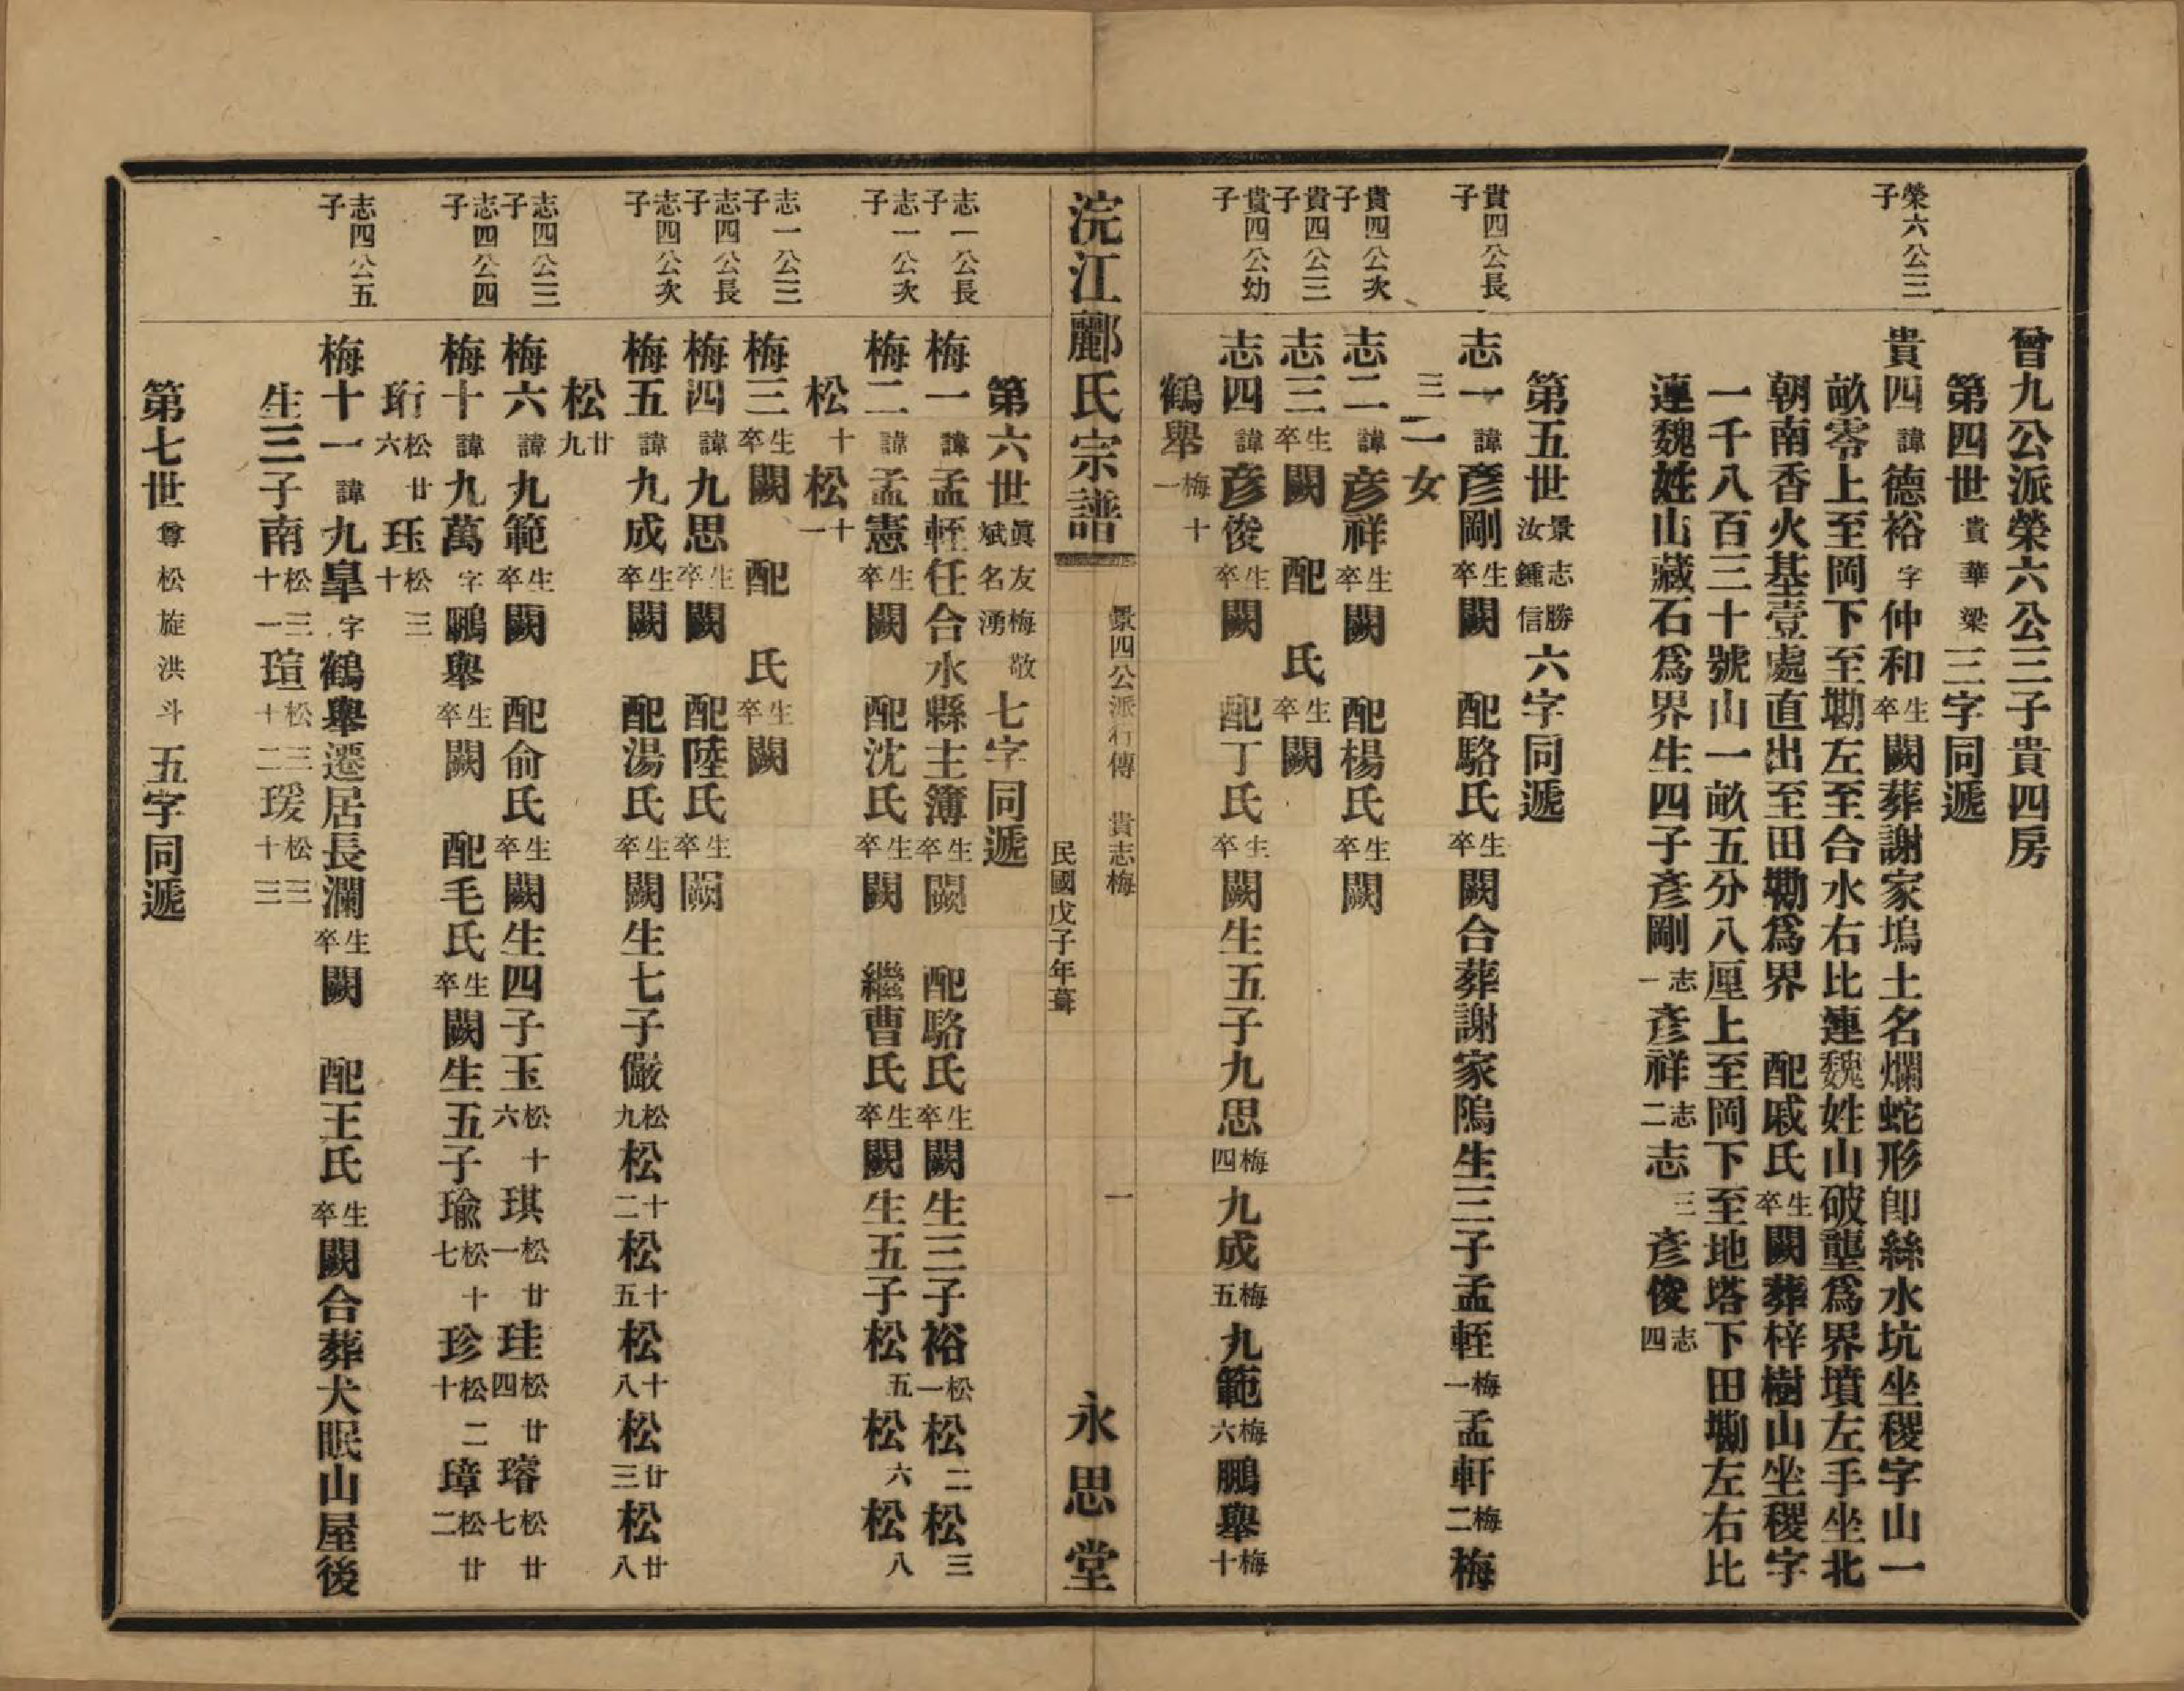 曾九公派榮六公三子貴四房
第四世貴華梁三字同遞
榮六公三子
貴四諱德裕字仲和生卒闕葬謝家塢土名爛蛇形卽絲水坑坐稷字山一
畝零上至岡下至墈左至合水右比連魏姓山破壟爲界墳左手坐北
朝南香火基壹處直出至田墈爲界 配戚氏生卒闕葬梓樹山坐稷字
一千八百三十號山一畝五分八厘上至岡下至地塔下田墈左右比
連魏姓山藏石爲界生四子彥剛志一彥祥志二志三彥俊志四
第五世景志勝汝鍾信六字同遞
貴四公長子
志一諱彥剛生卒闕 配駱氏生卒闕合葬謝家隖生三子孟輊梅一孟軒梅二梅
三二女
貴四公次子
志二諱彥祥生卒闕 配楊氏生卒闕
貴四公三子
志三生卒闕 配 氏生卒闕
貴四公幼子
志四諱彥俊生卒闕 配丁氏生卒闕生五子九思梅四九成梅五九範梅六鵬舉梅十
鶴舉梅十一
浣江酈氏宗譜
景四公派行傳 貴志梅
一
民國戊子年葺
永思堂
第六世眞友梅敬斌名湧七字同遞
志一公長子
梅一諱孟輊任合水縣主簿生卒闕 配駱氏生卒闕生三子裕松一松二松三
志一公次子
梅二諱孟憲生卒闕 配沈氏生卒闕 繼曹氏生卒闕生五子松五松六松八
松十松十一
志一公三子
梅三生卒闕 配 氏生卒闕
志四公長子
梅四諱九思生卒闕 配陸氏生卒闕
志四公次子
梅五諱九成生卒闕 配湯氏生卒闕生七子儼松九松十二松十五松十八松廿三松廿八
松廿九
志四公三子
梅六諱九範生卒闕 配俞氏生卒闕生四子玉松十六琪松廿一珪松廿四璿松廿七
志四公四子
梅十諱九萬字鵬舉生卒闕 配毛氏生卒闕生五子瑜松十七珍松二十璋松廿二
珩松廿六珏松三十
志四公五子
梅十一諱九臯字鶴舉遷居長瀾生卒闕 配王氏生卒闕合葬犬眠山屋後
生三子南松三十一瑄松三十二瑗松三十三
第七世尊松旋洪斗五字同遞